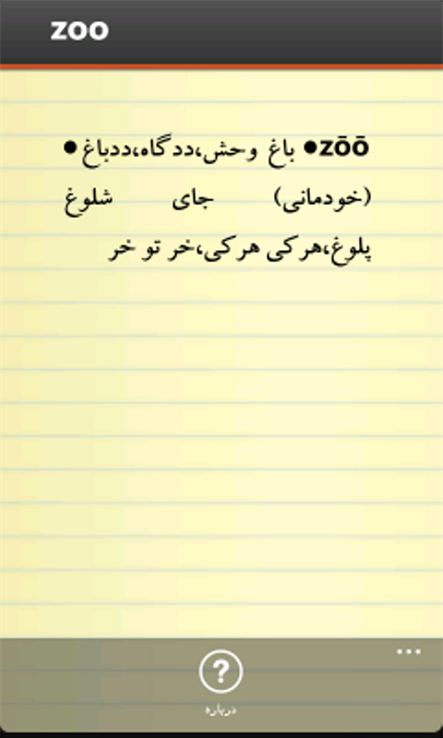 zoo
zōō● باغ وحش،ددگاه،ددباغ●
(خودمانی) جای شلوغ
پلوغ،هرکی هرکی،خر تو خر
درباره